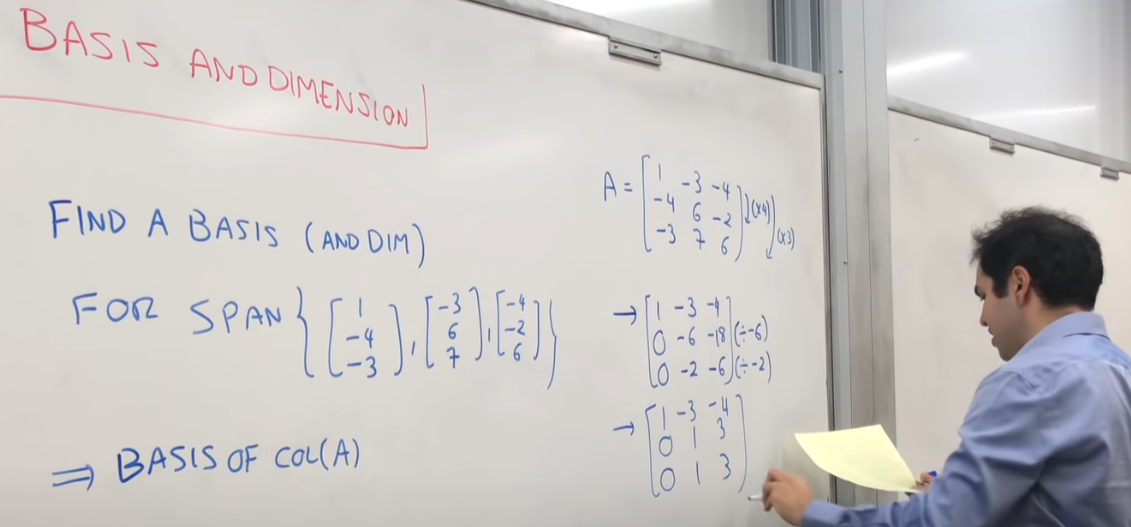 BASIS AND DIMENSION
FIND A BASIS (AND DIM)
FOR SPAN { [ 1 -4 -3 ], [ -3 6 7 ], [ -4 -2 6 ] }
⇒ BASIS OF COL(A)
A = [ 1 -3 -4
-4 6 -2
-3 7 6 ] (x4) (x3)
→ [ 1 -3 -4
0 -6 -18 (÷-6)
0 -2 -6 ] (÷-2)
→ [ 1 -3 -4
0 1 3
0 1 3 ]